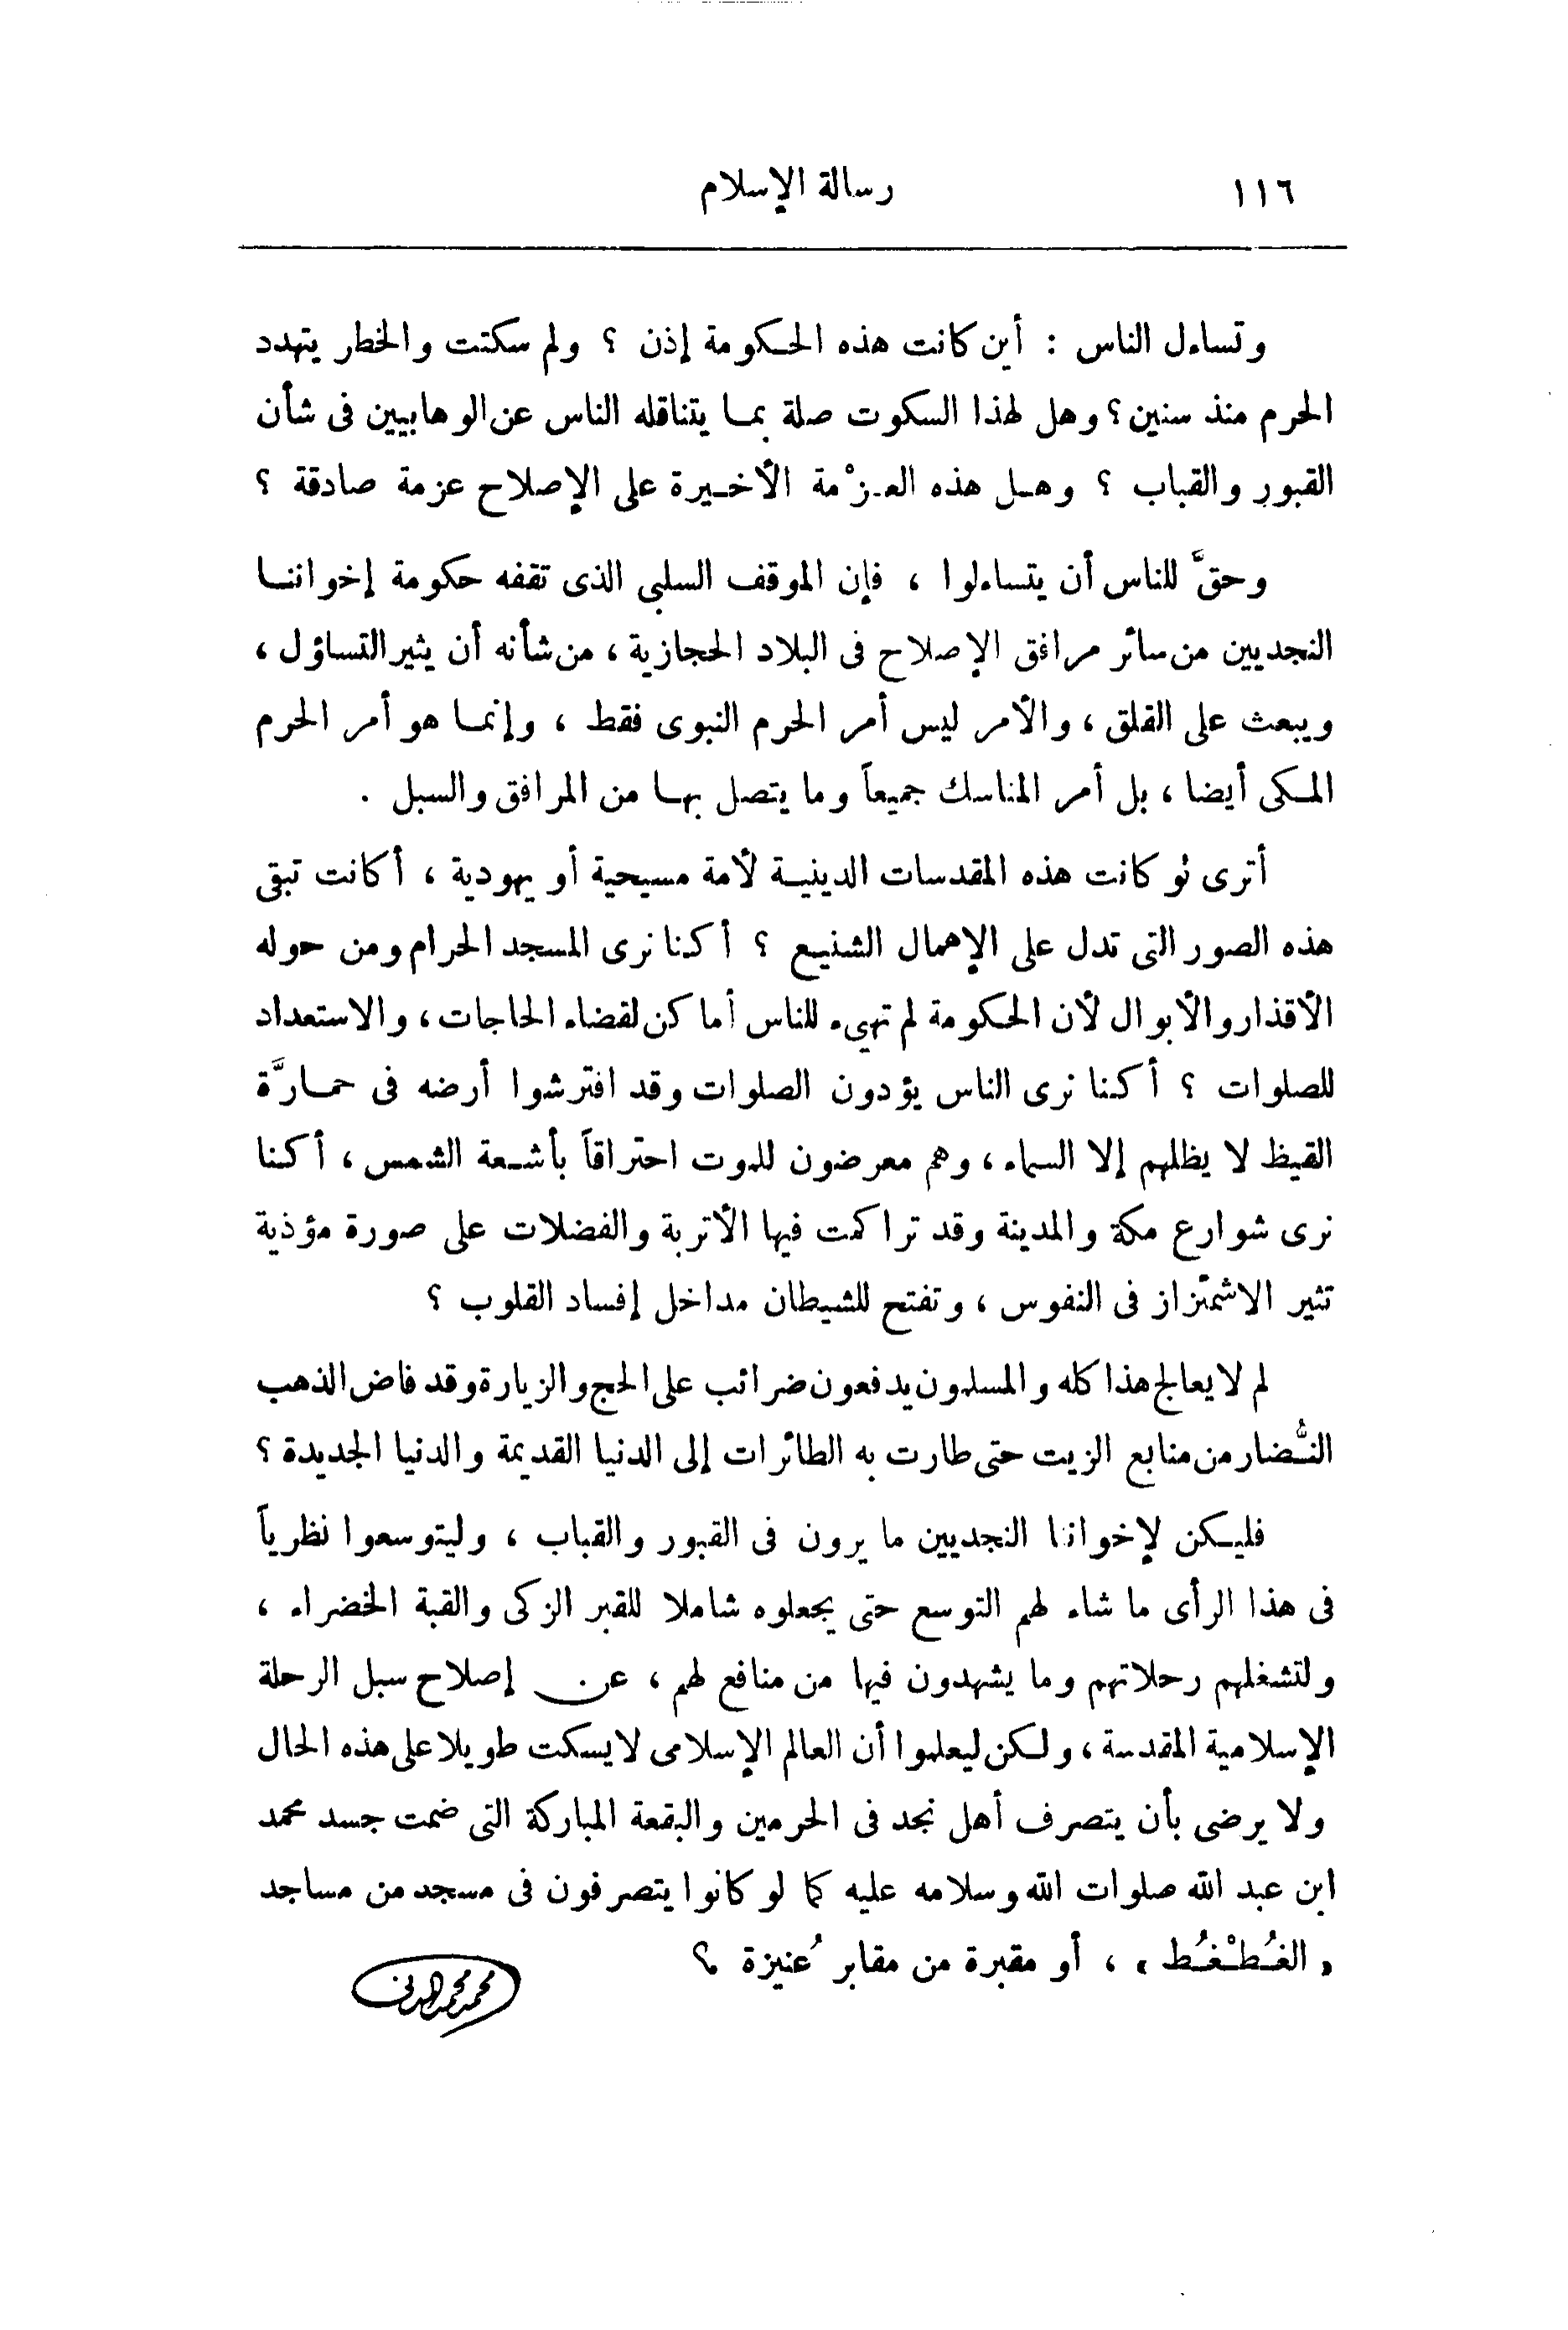 ١١٦
رسالة الإسلام
وتساءل الناس : أين كانت هذه الحكومة إذن ؟ ولم سكتت والخطر يتهدد
الحرم منذ سنين ؟ وهل لهذا السكوت صلة بما يتناقله الناس عن الوهابيين فى شأن
القبور والقباب ؟ وهل هذه العزْمة الأخيرة على الإصلاح عزمة صادقة ؟
وحقَّ للناس أن يتساءلوا ، فإن الموقف السلبى الذى تقفه حكومة إخواننا
النجديين من سائر مرافق الإصلاح فى البلاد الحجازية ، من شأنه أن يثير التساؤل ،
ويبعث على القلق ، والأمر ليس أمر الحرم النبوى فقط ، وإنما هو أمر الحرم
المكى أيضا ، بل أمر المناسك جميعاً وما يتصل بها من المرافق والسبل .
أترى لو كانت هذه المقدسات الدينية لأمة مسيحية أو يهودية ، أكانت تبقى
هذه الصور التى تدل على الإهمال الشنيع ؟ أكنا نرى المسجد الحرام ومن حوله
الأقذار والأبوال لأن الحكومة لم تهيء للناس أماكن لقضاء الحاجات ، والاستعداد
للصلوات ؟ أكنا نرى الناس يؤدون الصلوات وقد افترشوا أرضه فى حمارَّة
القيظ لا يظلهم إلا السماء ، وهم معرضون للموت احتراقاً بأشعة الشمس ، أكنا
نرى شوارع مكة والمدينة وقد تراكمت فيها الأتربة والفضلات على صورة مؤذية
تثير الاشمئزاز فى النفوس ، وتفتح للشيطان مداخل إفساد القلوب ؟
لم لا يعالج هذا كله والمسلمون يدفعون ضرائب على الحج والزيارة وقد فاض الذهب
النُّضار من منابع الزيت حتى طارت به الطائرات إلى الدنيا القديمة والدنيا الجديدة ؟
فليكن لإخواننا النجديين ما يرون فى القبور والقباب ، وليتوسعوا نظرياً
فى هذا الرأى ما شاء لهم التوسع حتى يجعلوه شاملا للقبر الزكى والقبة الخضراء ،
ولتشغلهم رحلاتهم وما يشهدون فيها من منافع لهم ، عن إصلاح سبل الرحلة
الإسلامية المقدسة ، ولكن ليعلموا أن العالم الإسلامى لا يسكت طويلا على هذه الحال
ولا يرضى بأن يتصرف أهل نجد فى الحرمين والبقعة المباركة التى ضمت جسد محمد
ابن عبد الله صلوات الله وسلامه عليه كما لو كانوا يتصرفون فى مسجد من مساجد
« الغُطْغُط » ، أو مقبرة من مقابر عُنيزة ؟
محمد محمد المدنى